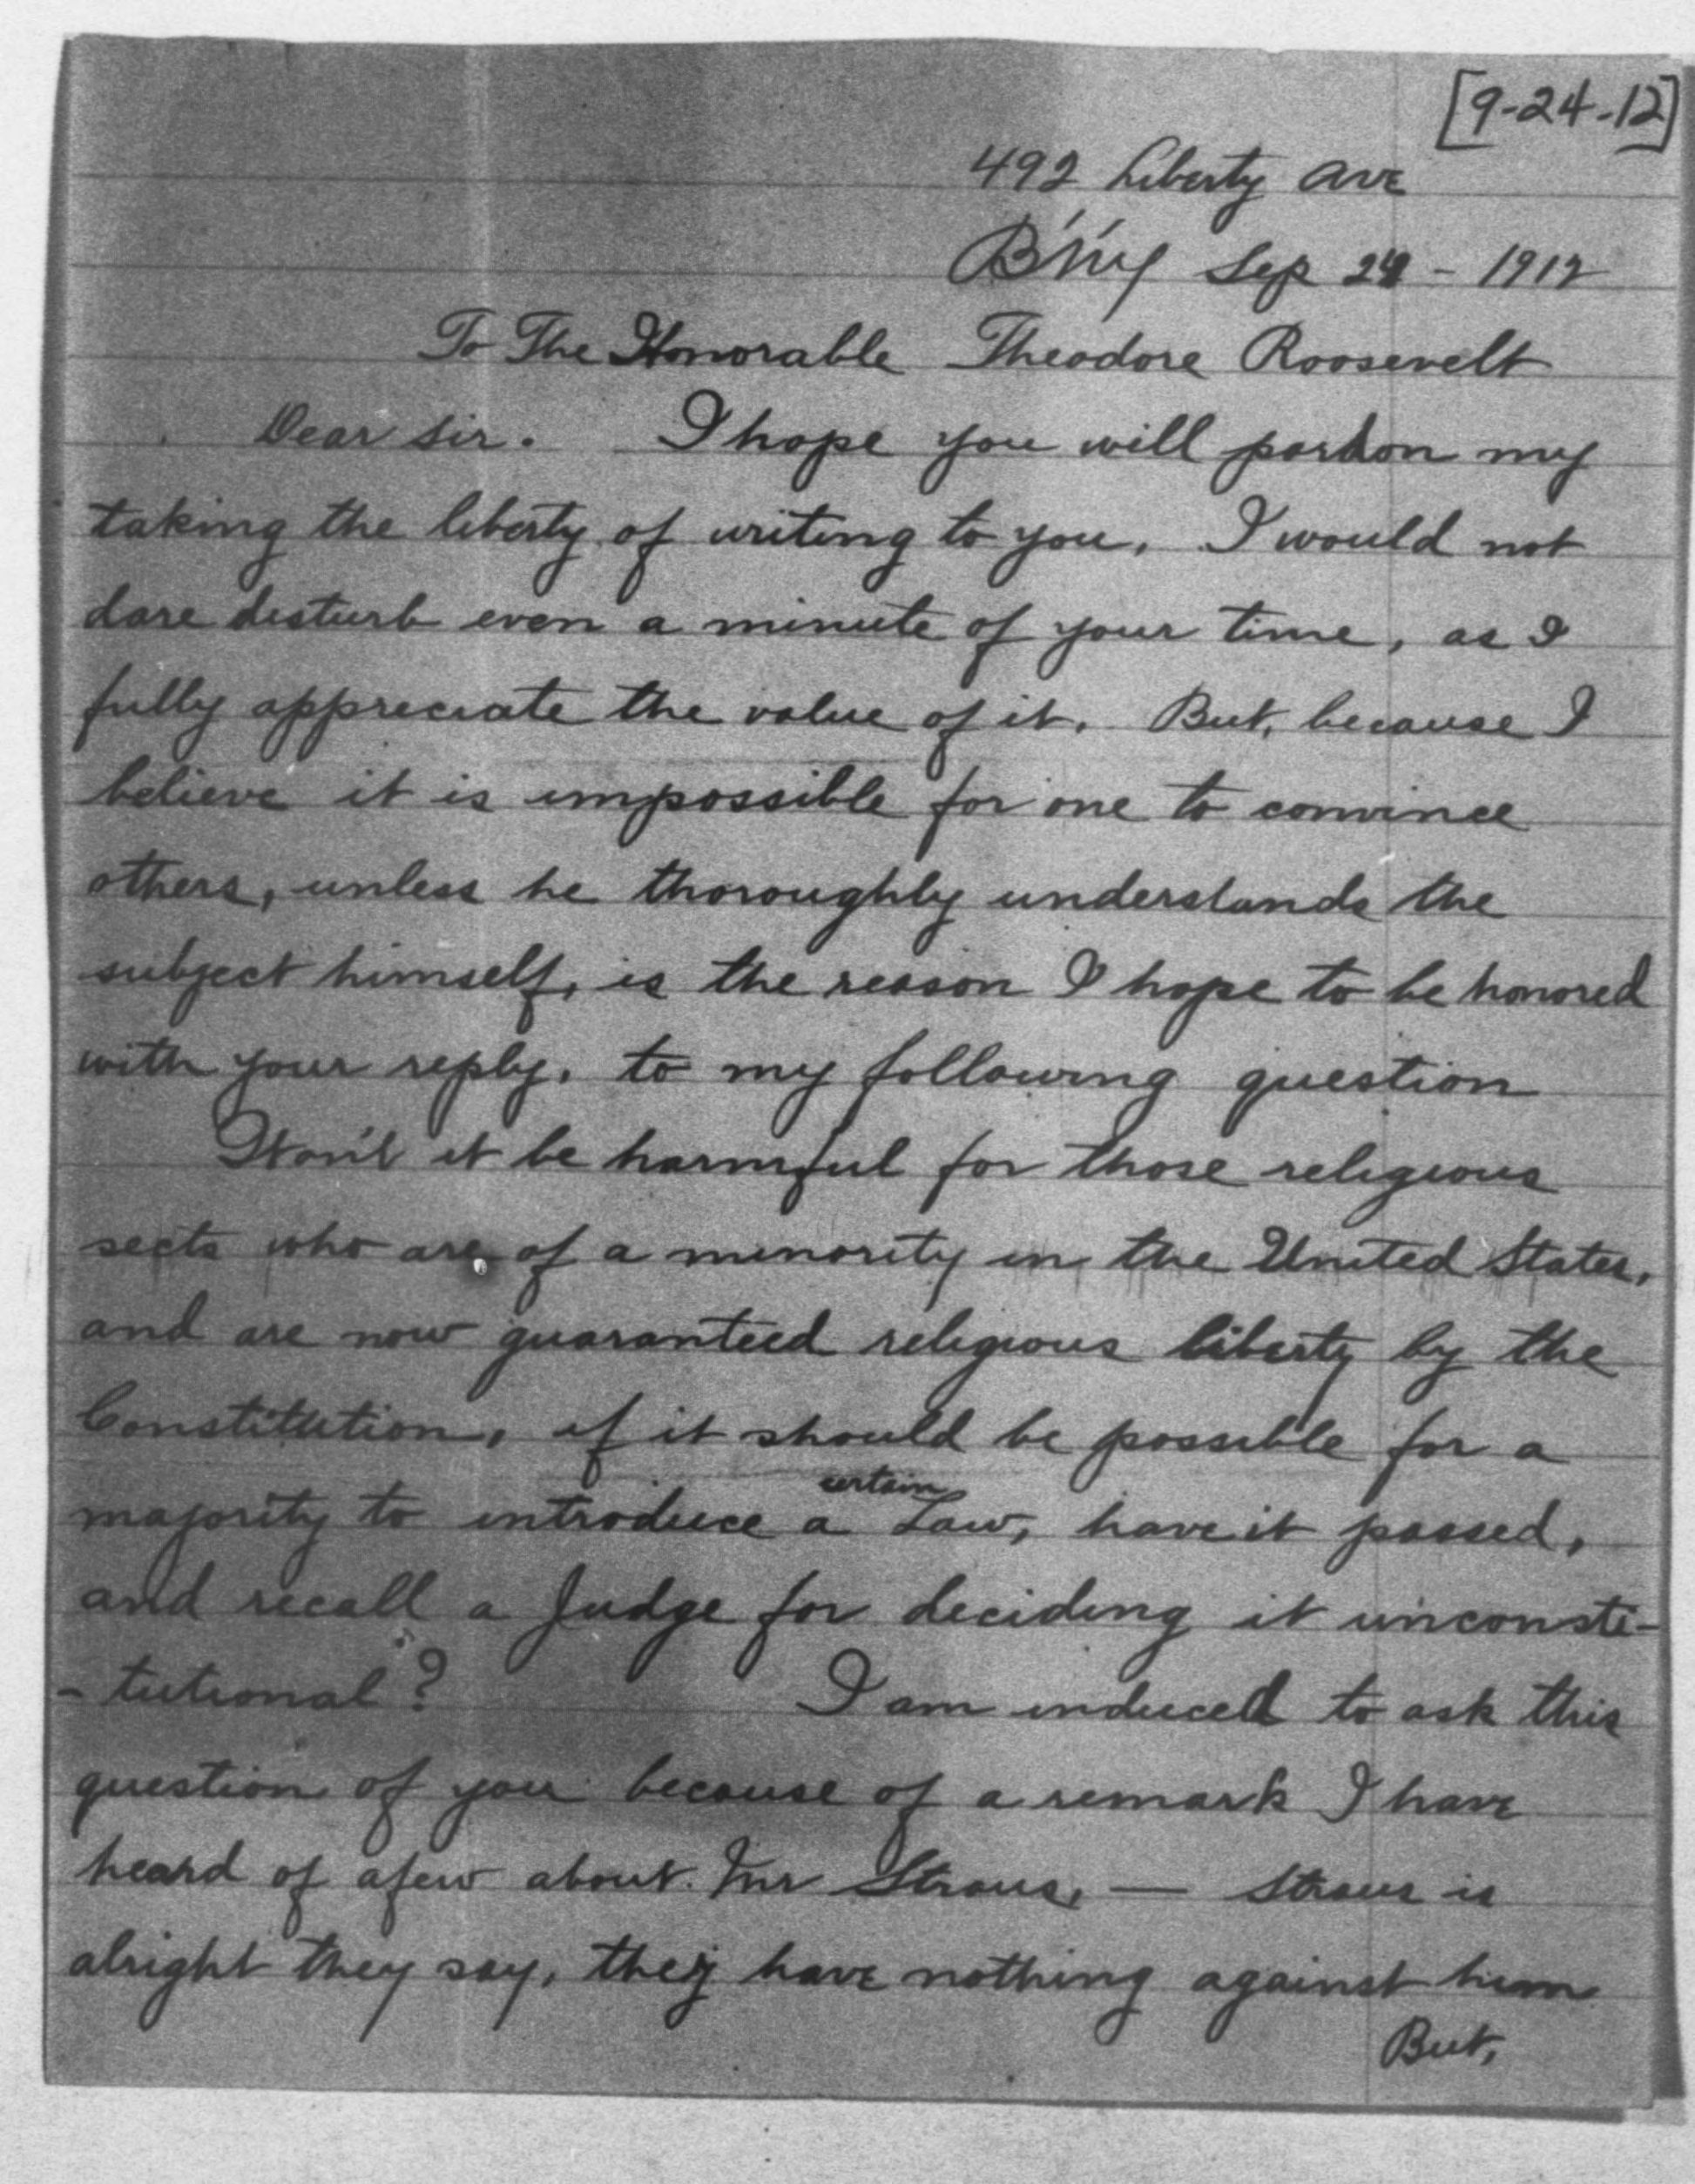 [9-24-12]
492 Liberty Ave
B'n'y Sep 24 - 1912
To The Honorable Theodore Roosevelt
Dear Sir. I hope you will pardon my
taking the liberty of writing to you, I would not
dare disturb even a minute of your time, as I
fully appreciate the value of it. But, because I
believe it is impossible for one to convince
others, unless he thoroughly understands the
subject himself, is the reason I hope to be honored
with your reply, to my following question
Won't it be harmful for those religious
sects who are of a minority in the United States,
and are now guaranteed religious liberty by the
Constitution, if it should be possible for a
certain
majority to introduce a Law, have it passed,
and recall a Judge for deciding it unconsti-
-tutional? I am induced to ask this
question of you because of a remark I have
heard of afew about. Mr Straus, — Straus is
alright they say, they have nothing against him
But,